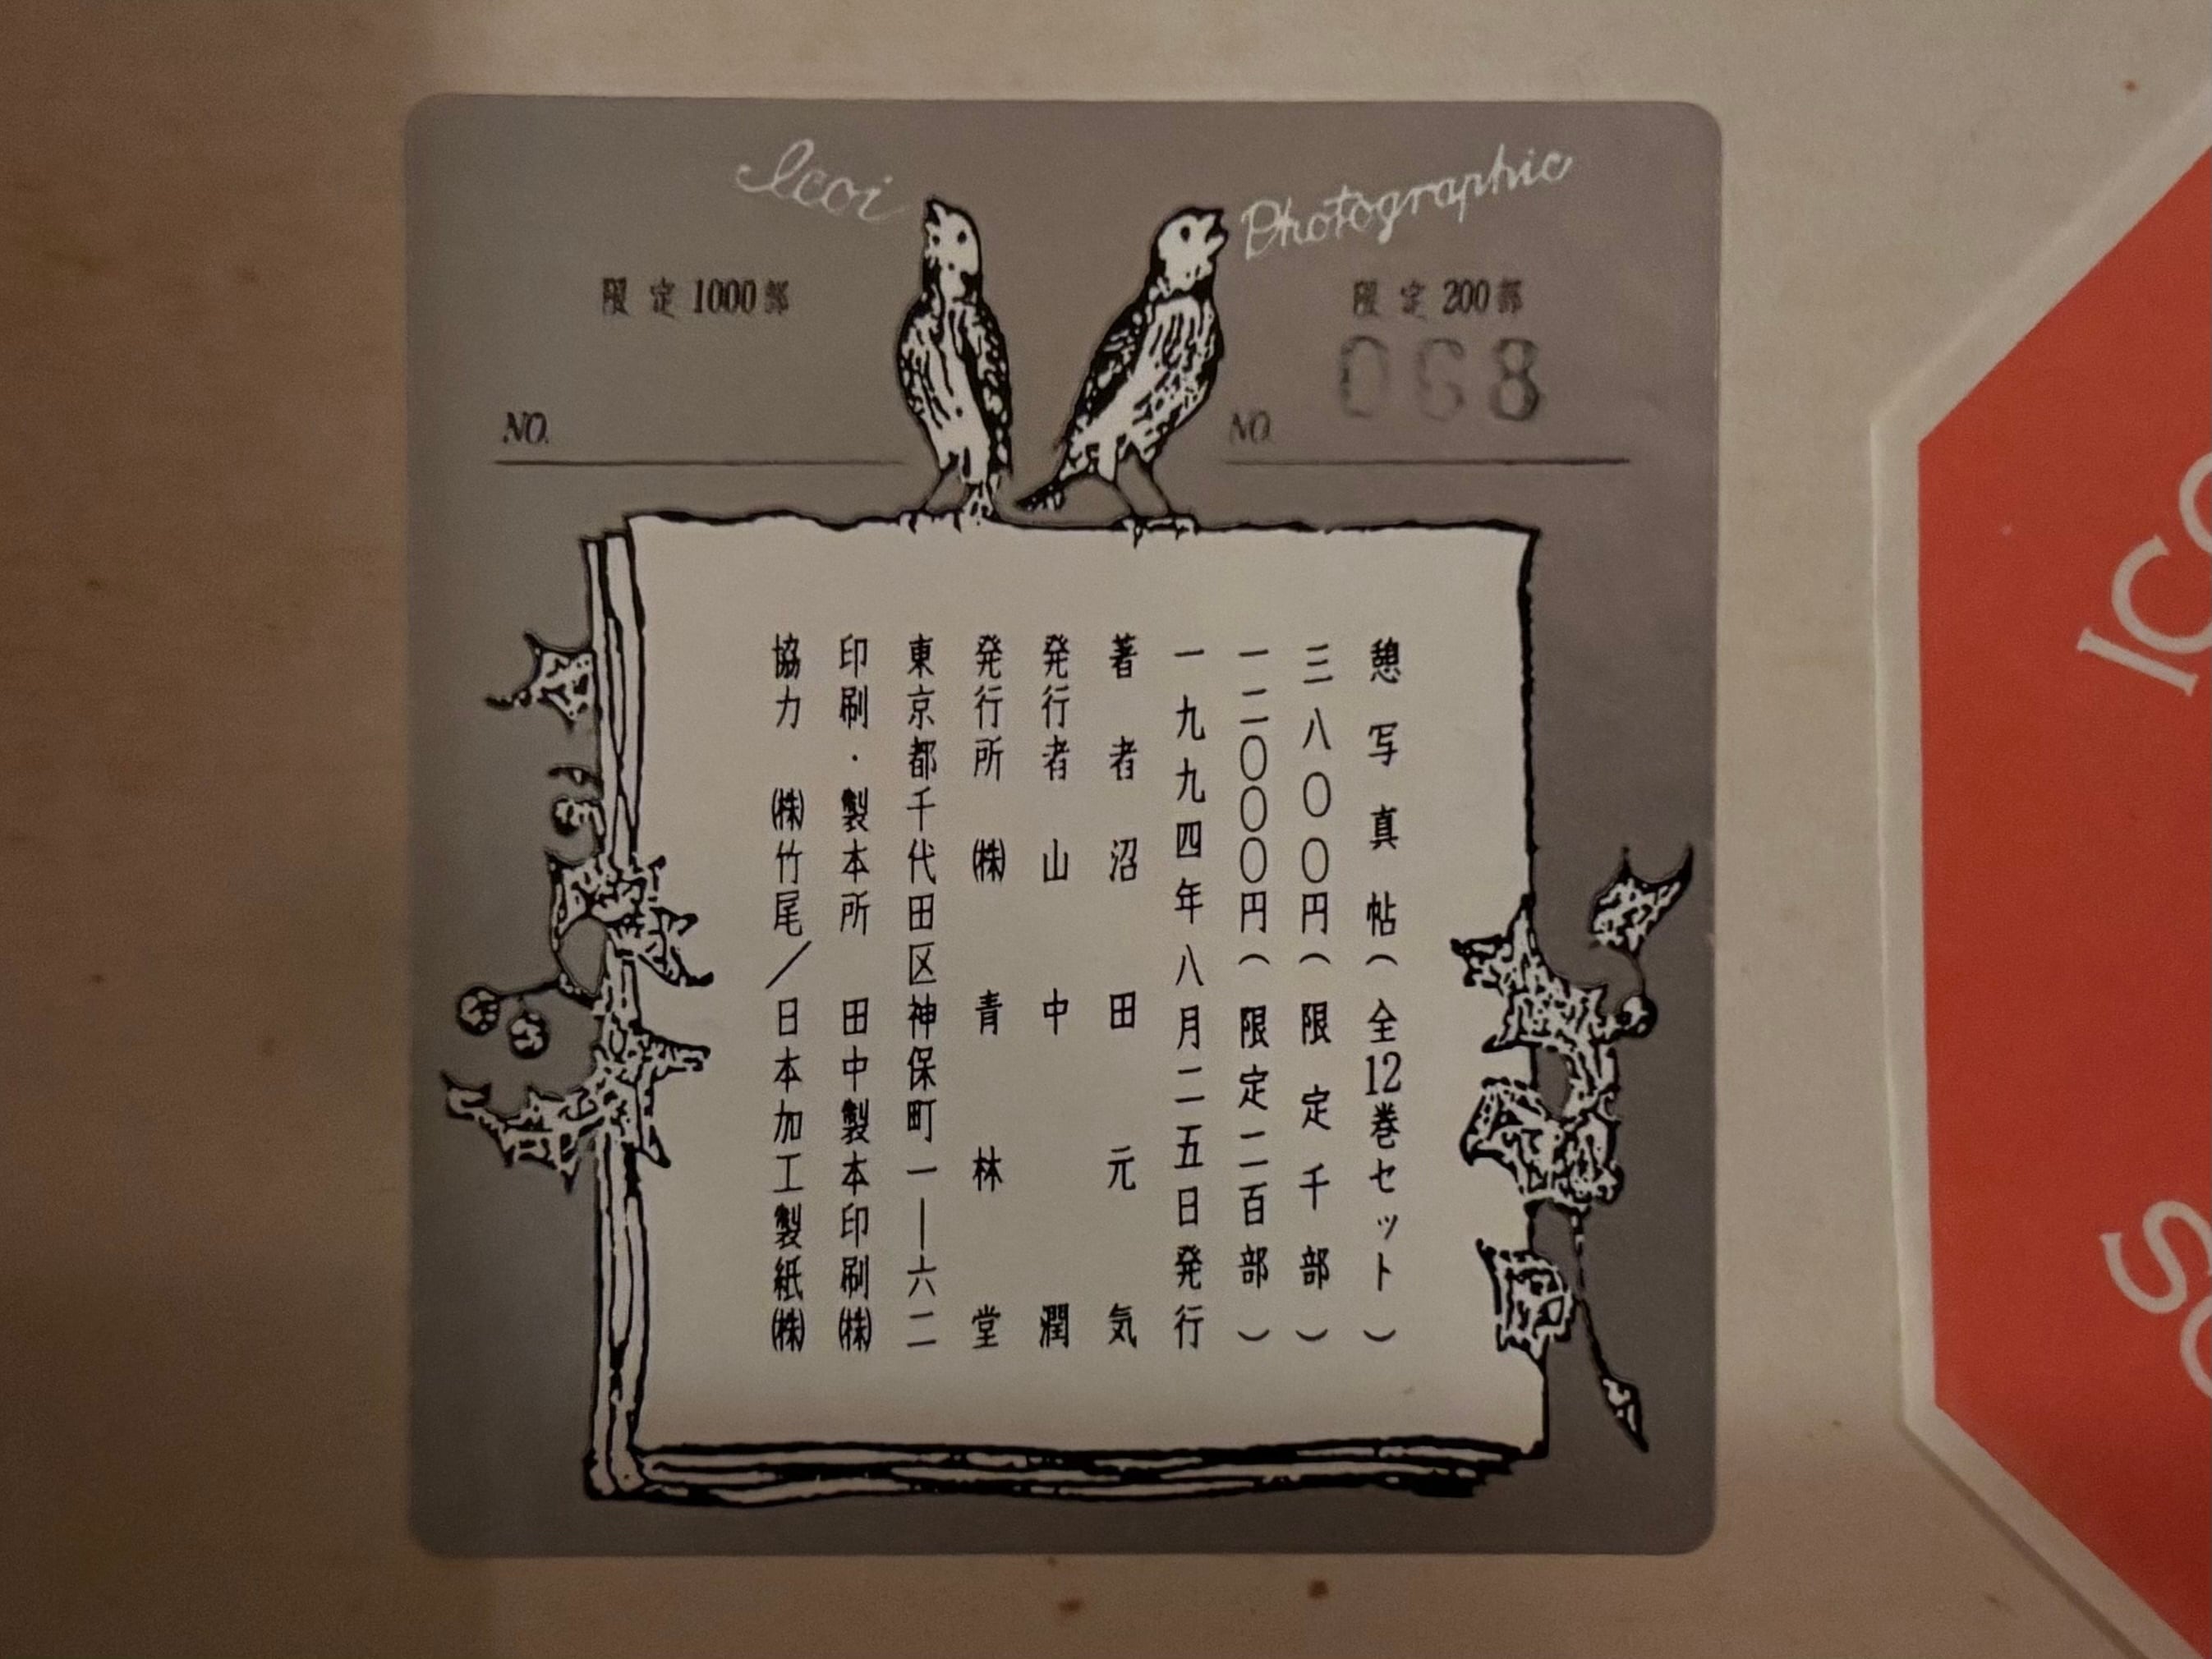 Icoi
Photographic
限定1000部
NO.
限定200部
NO. 068
憩写真帖(全12巻セット)
三八〇〇円(限定千部)
一二〇〇〇円(限定二百部)
一九九四年八月二五日発行
著者 沼田元気
発行者 山中潤
発行所 ㈱青林堂
東京都千代田区神保町一―六二
印刷・製本所 田中製本印刷㈱
協力 ㈱竹尾／日本加工製紙㈱